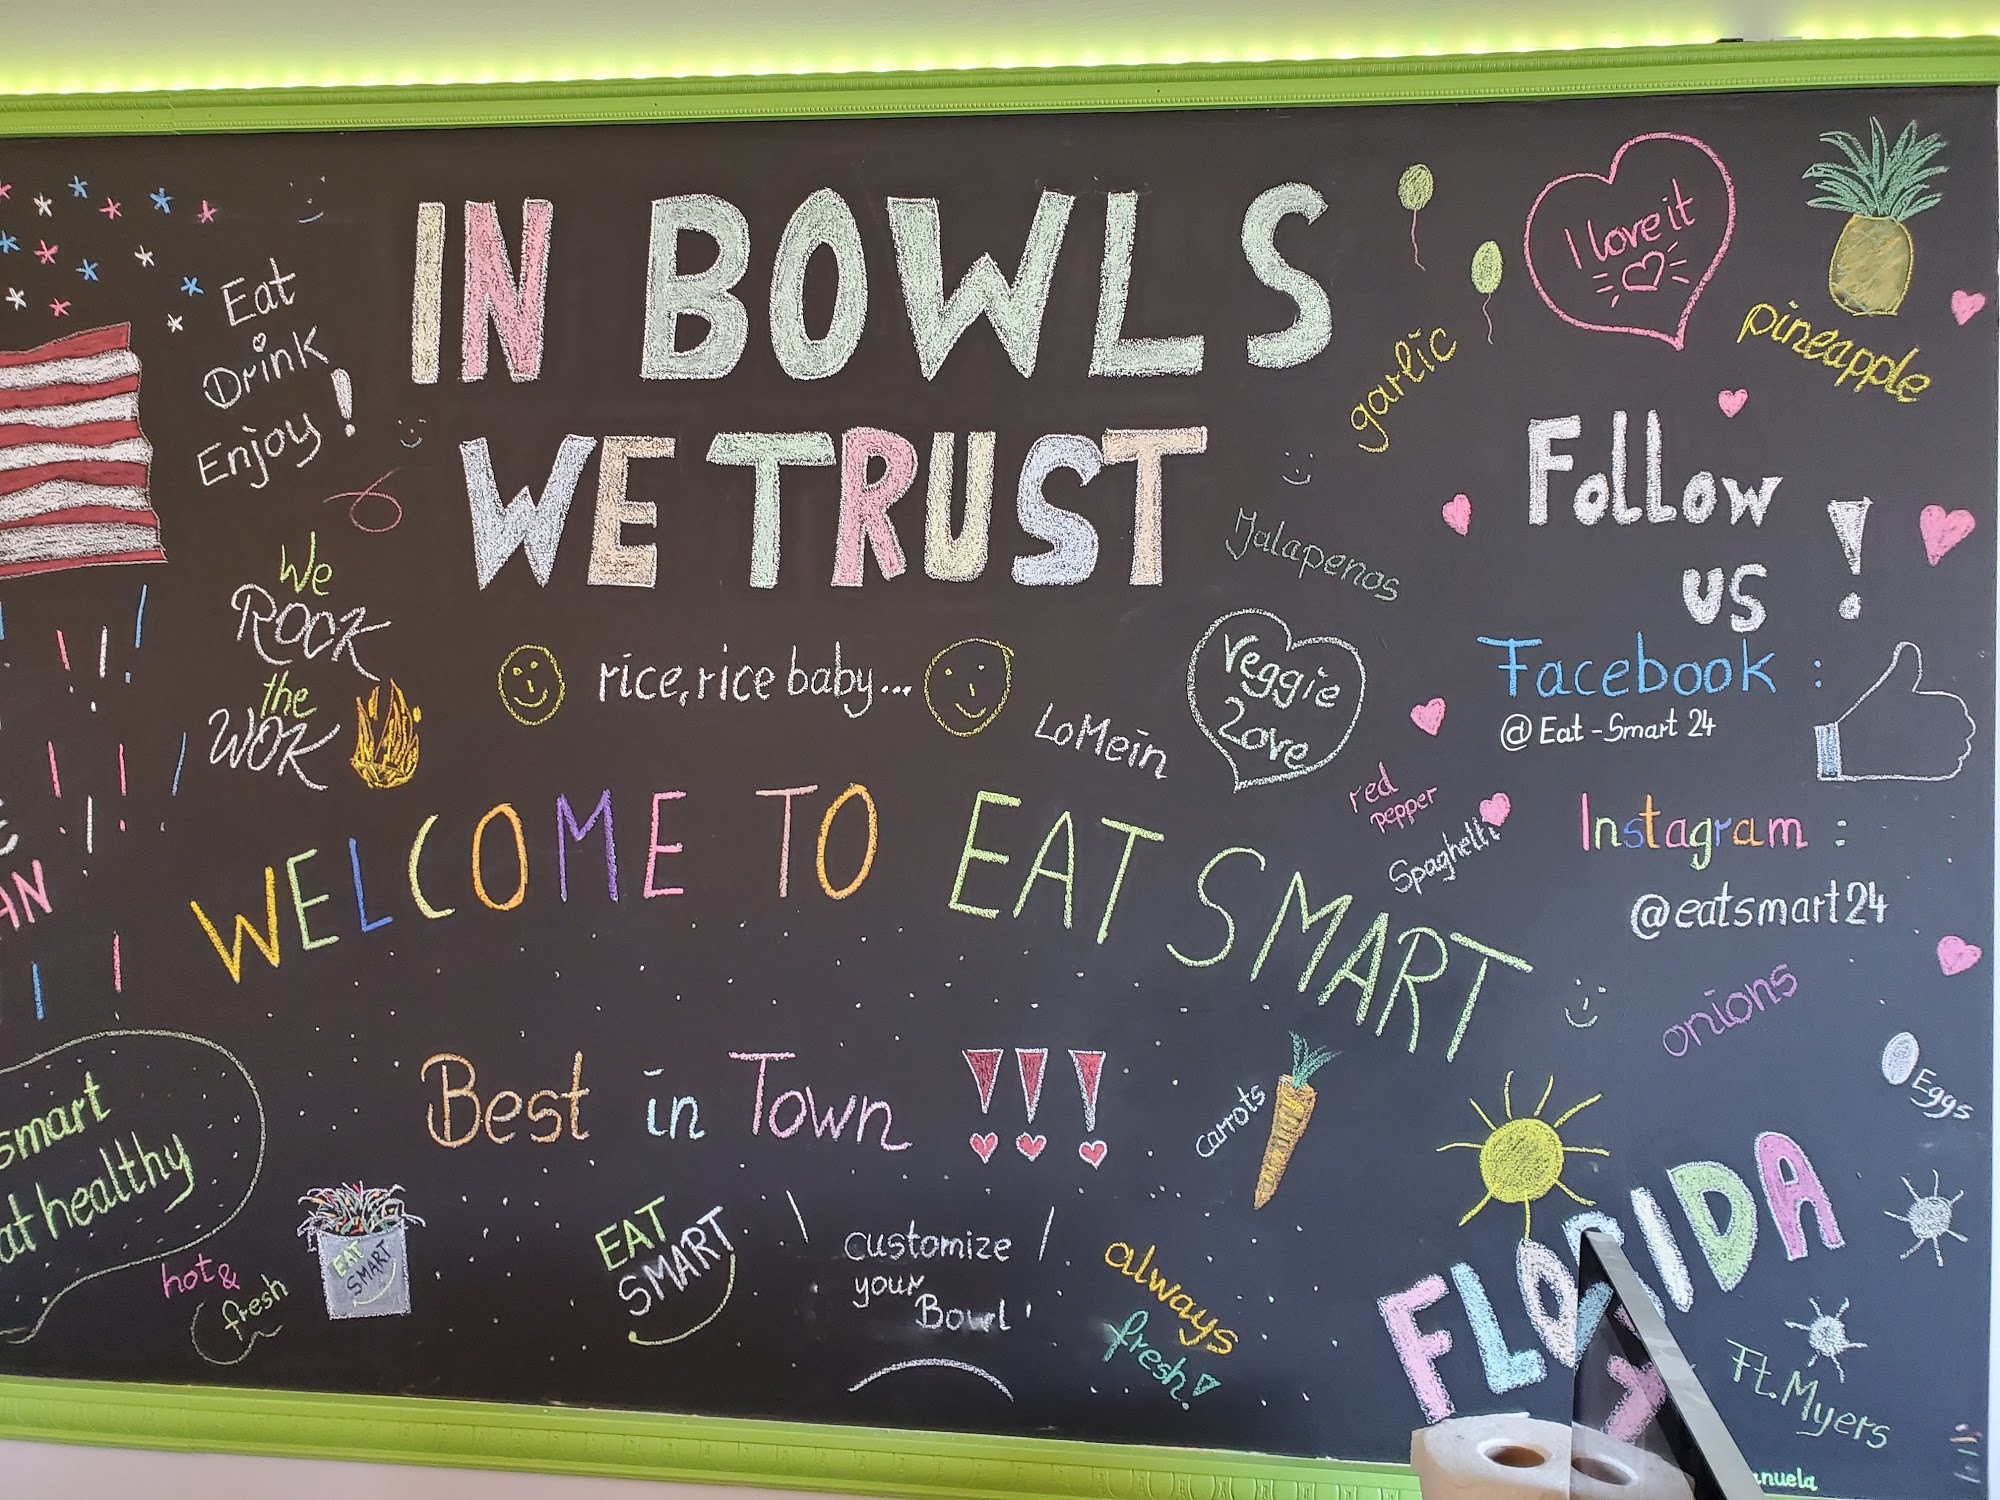 IN BOWLS
WE TRUST
Eat
Drink
Enjoy!
We
ROCK
the
WOK
rice, rice baby...
LoMein
Veggie
Love
Jalapenos
garlic
I love it
pineapple
Follow
us !
Facebook :
@ Eat-Smart 24
Instagram :
@eatsmart24
red
pepper
Spaghetti
onions
Eggs
WELCOME TO EAT SMART
AN
Best in Town !!!
carrots
smart
healthy
hot &
fresh
EAT
SMART
EAT
SMART
customize
your
Bowl
always
fresh!
FLORIDA
Ft. Myers